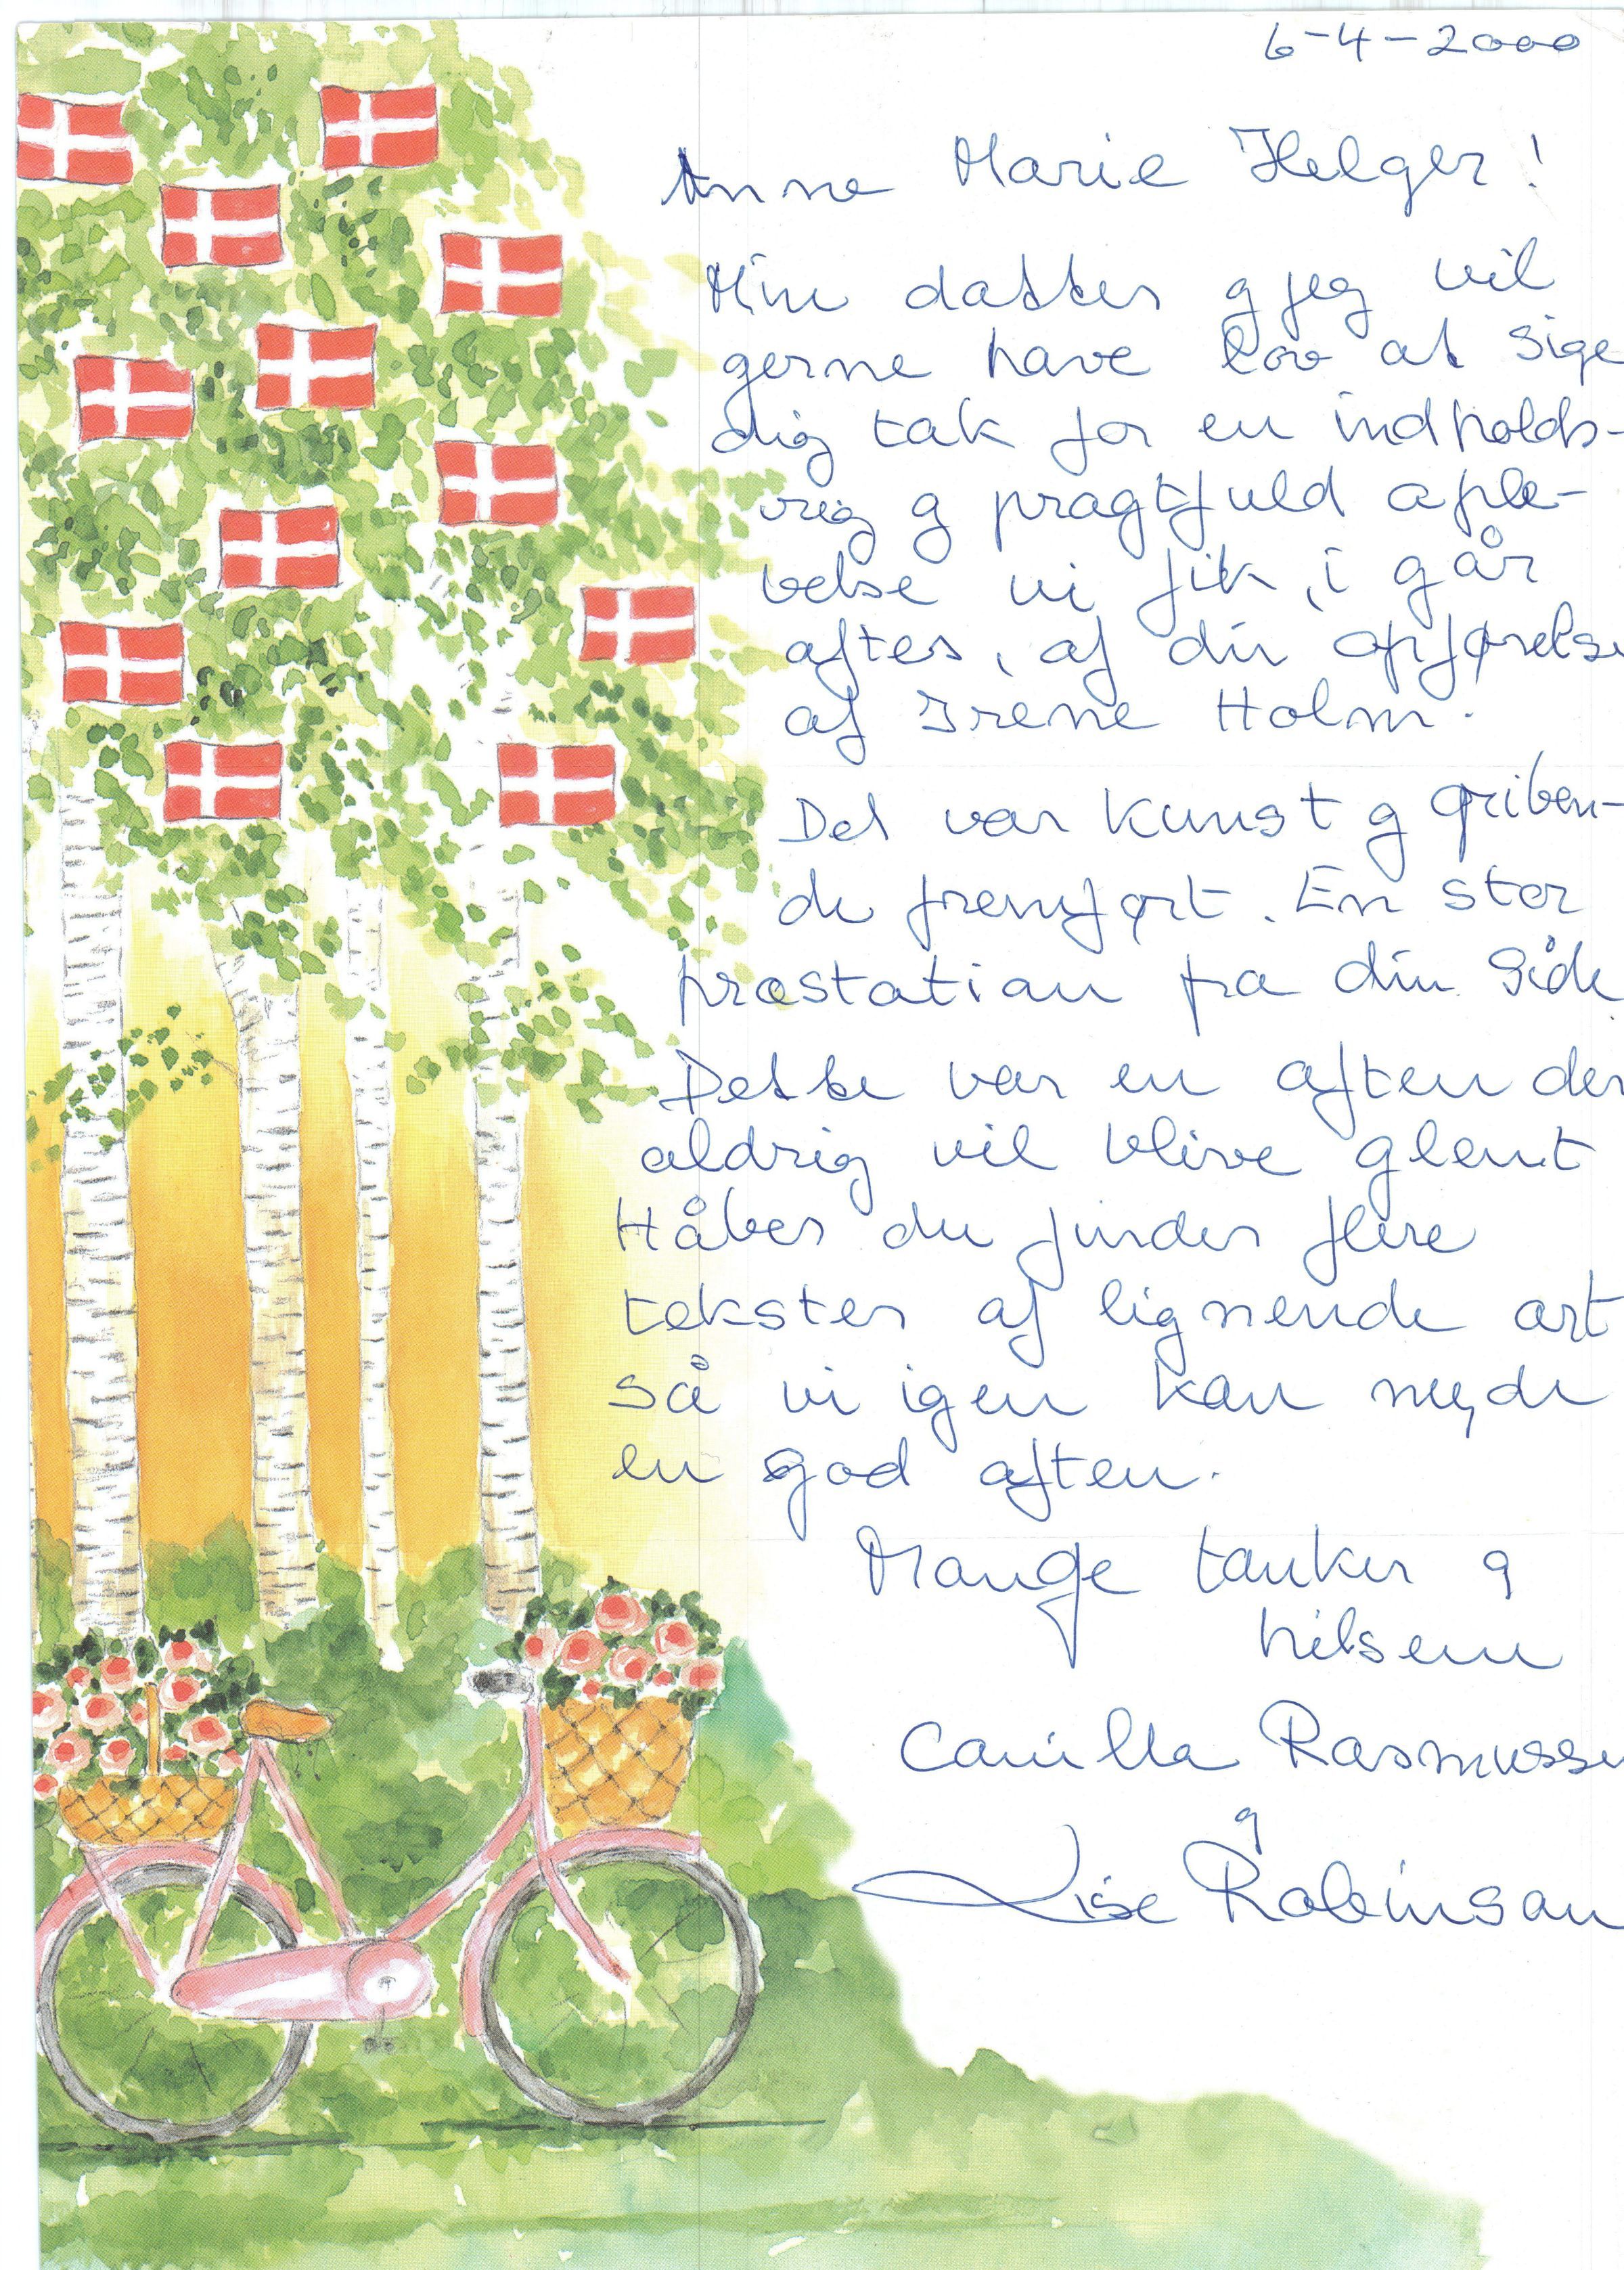 6-4-2000
Anne Marie Helger!
Min datter og jeg vil
gerne have lov at sige
dig tak for en indholds-
rig og pragtfuld ople-
velse vi fik, i går
aftes, af din opførelse
af Irene Holm.
Det var kunst og griben-
de fremført. En stor
præstation fra din side.
Dette var en aften der
aldrig vil blive glemt
Håber du finder flere
tekster af lignende art
så vi igen kan nyde
en god aften.
Mange tanker og
hilsem
Camilla Rasmussen
og
Lise Robinson